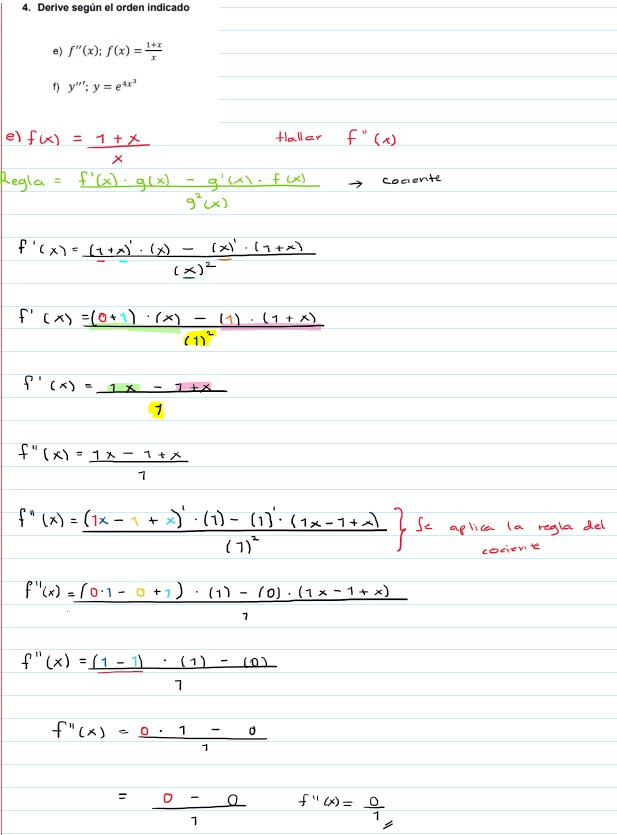 4. Derive según el orden indicado
e) f''(x); f(x) = \frac{1+x}{x}
f) y'''; y = e^{4x^3}
e) f(x) = \frac{1 + x}{x} Hallar f''(x)
Regla = \frac{f'(x) · g(x) - g'(x) · f(x)}{g^2(x)} → cociente
f'(x) = \frac{(1+x)' · (x) - (x)' · (1+x)}{(x)^2}
f'(x) = \frac{(0+1) · (x) - (1) · (1+x)}{(1)^2}
f'(x) = \frac{1x - 1+x}{1}
f''(x) = \frac{1x - 1+x}{1}
f''(x) = \frac{(1x - 1 + x)' · (1) - (1)' · (1x-1+x)}{(1)^2} } Se aplica la regla del
cociente
f''(x) = \frac{(0·1 - 0 + 1) · (1) - (0) · (1x-1+x)}{1}
f''(x) = \frac{(1 - 1) · (1) - (0)}{1}
f''(x) = \frac{0 · 1 - 0}{1}
= \frac{0 - 0}{1} f''(x) = \frac{0}{1}